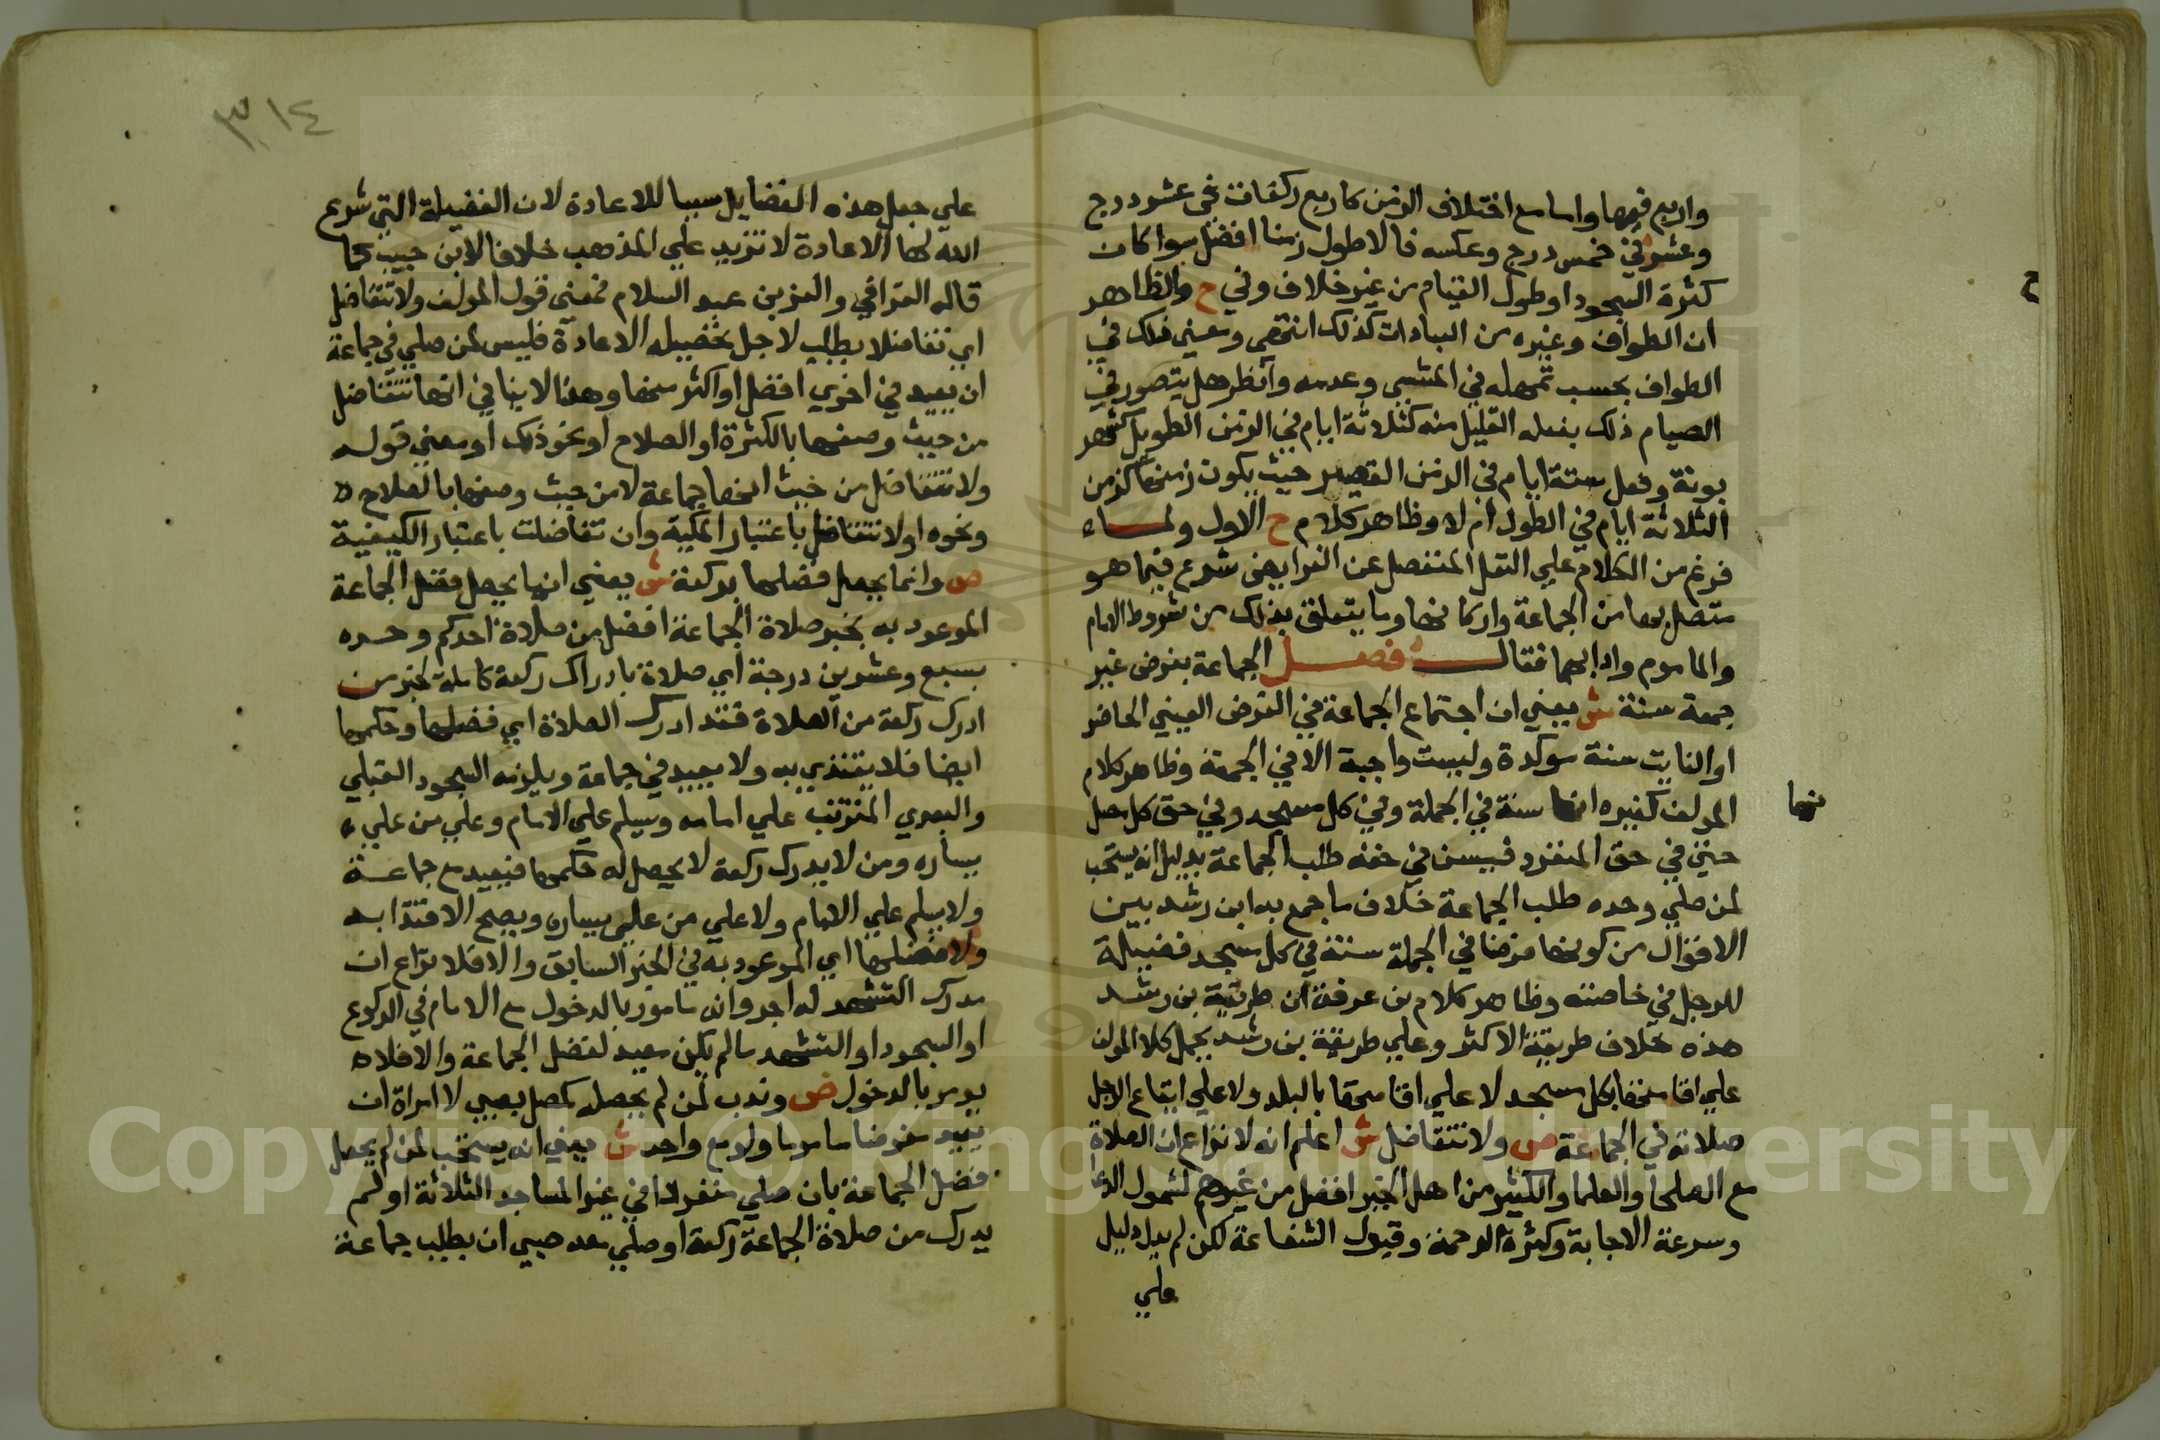 واربع فيها واما مع اختلاف الزمن كاربع ركعات في عشر درج
وعشر في خمس درج وعكسه فالاطول زمنا افضل سوا كان
كثرة السجود او طول القيام من غير خلاف وفي ح والظاهر
ان الطواف وغيره من العبادات كذلك انتهى ومعني ذلك في
الطواف بحسب تمهله في المشي وعدمه وانظر هل يتصور في
الصيام ذلك بفعله القليل منه كثلاثة ايام في الزمن الطويل كشهر
بونة وفعل ستة ايام في الزمن القصير حيث يكون زمنها كزمن
الثلاثة ايام في الطول ام لا وظاهر كلام ح الاول ولما
فرغ من الكلام علي النفل المنفصل عن الفرايض شرع فيما هو
متصل بها من الجماعة واركانها وما يتعلق بذلك من شروط الامام
والماموم وادابهما فقال فصل الجماعة بفرض غير
جمعة سنة ش يعني ان اجتماع الجماعة في الفرض العيني الحاضر
او الفايت سنة موكدة وليست واجبة الا في الجمعة وظاهر كلام
المولف كغيره انها سنة في الجملة وفي كل مسجد وفي حق كل مصل
حتي في حق المنفرد فيسن في حقه طلب الجماعة بدليل انه يستحب
لمن صلي وحده طلب الجماعة خلاف ما جمع به ابن رشد بين
الاقوال من كونها فرضا في الجملة سنة في كل مسجد فضيلة
للرجل في خاصته وظاهر كلام بن عرفة ان طريقة بن رشد
هذه خلاف طريقة الاكثر وعلي طريقة بن رشد يحمل كلام المولف
علي اقامتها بكل مسجد لا علي اقامتها بالبلد ولا علي ايقاع الرجل
صلاته في الجماعة ص ولا تتفاضل ش اعلم انه لا نزاع ان الصلاة
مع الصلحا والعلما والكثير من اهل الخير افضل من غيرهم لشمول الدعا
وسرعة الاجابة وكثرة الرحمة وقبول الشفاعة لكن لم يدل دليل
علي
ح
نها
٣١٤
علي جعل هذه الفضايل سببا للاعادة لان الفضيلة التي شرع
الله لها الاعادة لا تزيد علي المذهب خلافا لابن حبيب كما
قاله القرافي والعز بن عبد السلام فمعني قول المولف ولا تتفاضل
اي تفاضلا يطلب لاجل تحصيله الاعادة فليس لمن صلي في جماعة
ان يعيد في اخري افضل او اكثر منها وهذا لا ينافي انها تتفاضل
من حيث وصفها بالكثرة او الصلاح او نحو ذلك او معني قوله
ولا تتفاضل من حيث انها جماعة لا من حيث وصفها بالصلاح
ونحوه او لا تتفاضل باعتبار الكمية وان تفاضلت باعتبار الكيفية
ص وانما يحصل فضلها بركعة ش يعني انما يحصل فضل الجماعة
الموعود به بخبر صلاة الجماعة افضل من صلاة احدكم وحده
بسبع وعشرين درجة اي صلاة بادراك ركعة كاملة لخبر من
ادرك ركعة من الصلاة فقد ادرك الصلاة اي فضلها وحكمها
ايضا فلا يقتدي به ولا يعيد في جماعة ويلزمه السجود القبلي
والبعدي المترتب علي امامه وسيلم علي الامام وعلي من علي
يساره ومن لا يدرك ركعة لا يحصل له حكمها فيعيد مع جماعة
ولا يسلم علي الامام ولا علي من علي يساره ويصح الاقتدا به
ولا فضلها اي الموعود به في الخبر السابق والا فلا نزاع ان
مدرك التشهد له اجر وانه مامور بالدخول مع الامام في الركوع
او السجود او التشهد ما لم يكن معيد لفضل الجماعة والا فلا
يومر بالدخول ص وندب لمن لم يحصله كمصل بصبي لا امراة ان
يعيد مفوضا ماموما ولو مع واحد ش يعني انه يستحب لمن لم يحصل
فضل الجماعة بان صلي منفردا في غير المساجد الثلاثة او لم
يدرك من صلاة الجماعة ركعة او صلي معه صبي ان يطلب جماعة
Copyright © King Saud University